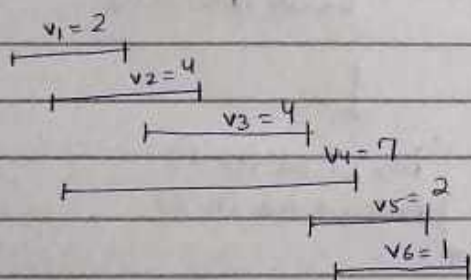 v1 = 2
v2 = 4
v3 = 4
v4 = 7
v5 = 2
v6 = 1